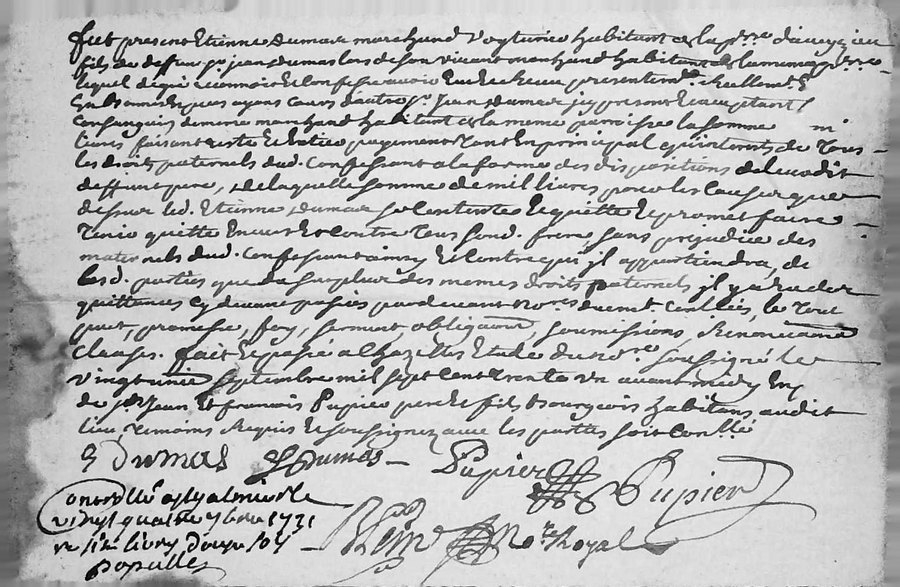 fut present Etienne dumas marchand voyturier habitant de la psse d'aveyzieu
fils de deffunt sr jean dumas lors de son vivant marchand habitant de la meme psse
lequel de gré reconnoit et confesse avoir eu et receu presentemt et reellement
en bonnes especes ayans cours d'autre sr Jean dumas jcy present et acceptant
consanguin dememe marchand habitant de la meme parroisse la somme mil
livres faisant reste et entier payement tant en principal qu'interets de tous
les droits paternels dud. confessant a la forme des dispositions de leurdit
deffunt pere, de laquelle somme de mil livres pour les causes que
dessus led. Etienne dumas se contente et quitte et promet faire
tenir quitte envers et contre tous sond. frere sans prejudice des
maternels dud. confessant et contre qui jl appartiendra, de
lesd. parties que de surplus des memes droits paternels jl y a eu des
quittances cy devant passées pardevant nores duemt conllées, le tout
promesse, foy, serment, obligaons, soumissions Renonciaons
clauses. fait et passé a Chazelles Etude du nore soussigné le
vingt unie septembre mil sept cent trente un avant midy en
de srs Jean et francois Pupier pere et fils bourgeois habitans audit
lieu temoins Requis et soussignez avec les parties soit conllé
E Dumas J Dumas Pupier
F Pupier
Controllé a St galmier le
vingt quatre 7bre 1731
Re six livres douze sols
nore Royal